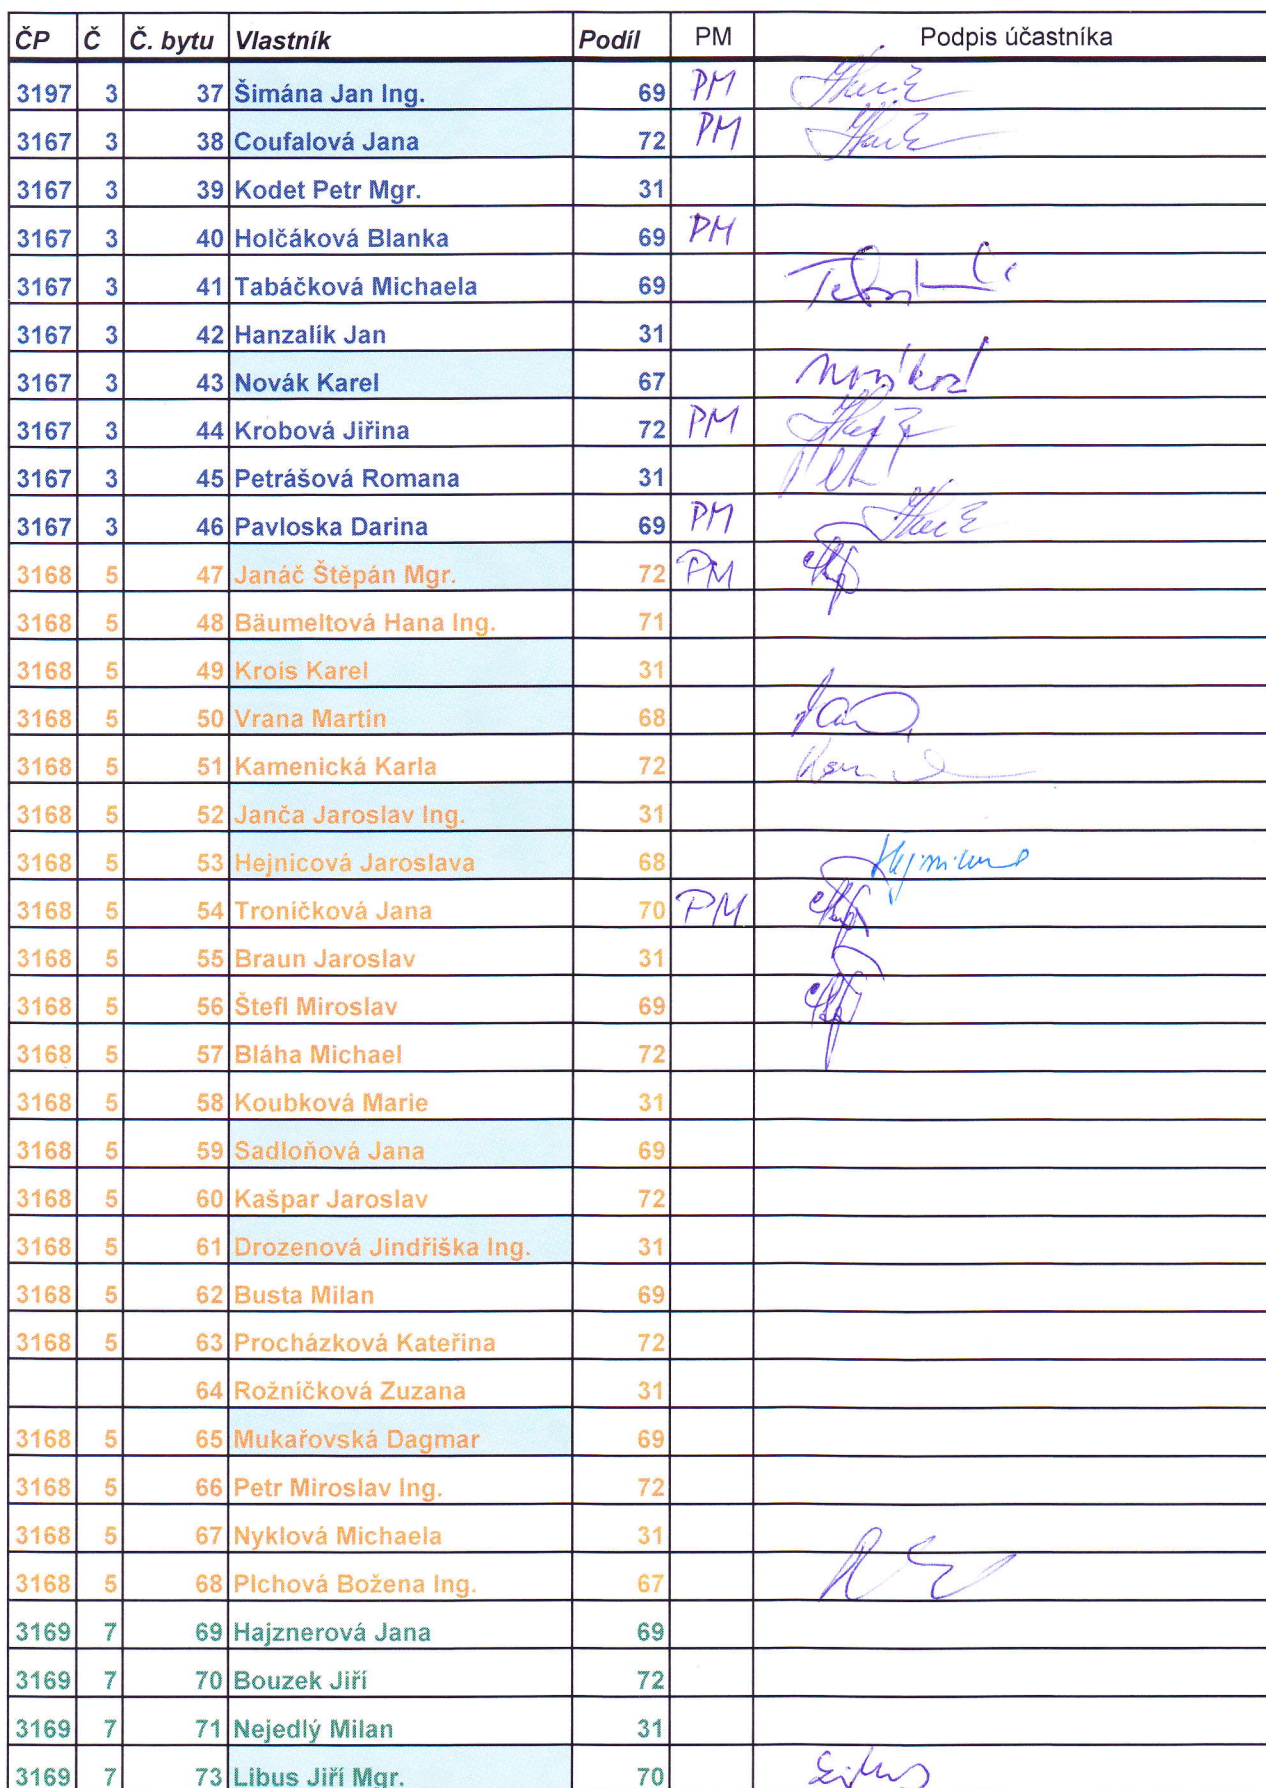 ČP Č Č. bytu Vlastník Podíl PM Podpis účastníka
3197 3 37 Šimána Jan Ing. 69 PM
3167 3 38 Coufalová Jana 72 PM
3167 3 39 Kodet Petr Mgr. 31
3167 3 40 Holčáková Blanka 69 PM
3167 3 41 Tabáčková Michaela 69
3167 3 42 Hanzalík Jan 31
3167 3 43 Novák Karel 67
3167 3 44 Krobová Jiřina 72 PM
3167 3 45 Petrášová Romana 31
3167 3 46 Pavloska Darina 69 PM
3168 5 47 Janáč Štěpán Mgr. 72 PM
3168 5 48 Bäumeltová Hana Ing. 71
3168 5 49 Krois Karel 31
3168 5 50 Vrana Martin 68
3168 5 51 Kamenická Karla 72
3168 5 52 Janča Jaroslav Ing. 31
3168 5 53 Hejnicová Jaroslava 68
3168 5 54 Troníčková Jana 70 PM
3168 5 55 Braun Jaroslav 31
3168 5 56 Štefl Miroslav 69
3168 5 57 Bláha Michael 72
3168 5 58 Koubková Marie 31
3168 5 59 Sadloňová Jana 69
3168 5 60 Kašpar Jaroslav 72
3168 5 61 Drozenová Jindřiška Ing. 31
3168 5 62 Busta Milan 69
3168 5 63 Procházková Kateřina 72
64 Rožníčková Zuzana 31
3168 5 65 Mukařovská Dagmar 69
3168 5 66 Petr Miroslav Ing. 72
3168 5 67 Nyklová Michaela 31
3168 5 68 Plchová Božena Ing. 67
3169 7 69 Hajznerová Jana 69
3169 7 70 Bouzek Jiří 72
3169 7 71 Nejedlý Milan 31
3169 7 73 Libus Jiří Mgr. 70